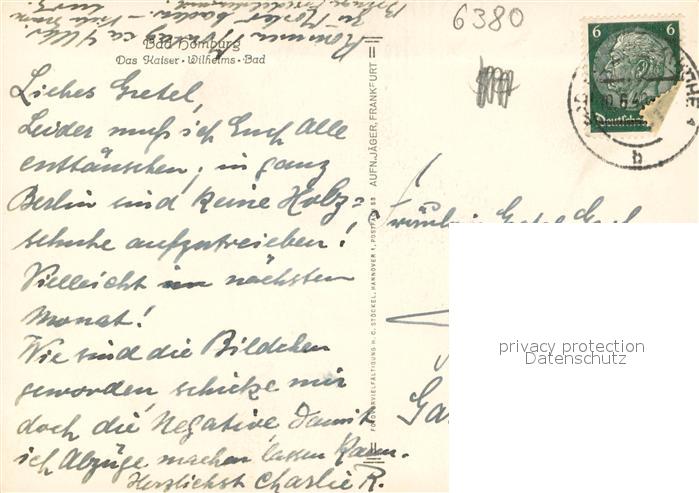 6380
6 6
Deutsches
b
Bad Homburg
Das Kaiser-Wilhelms-Bad
Liebes Gretel,
Leider muß ich Euch Alle
enttäuschen; in ganz
Berlin sind keine Holz=
schuhe aufzutreiben!
Vielleicht im nächsten
Monat!
Wie sind die Bildchen
geworden schicke mir
doch die Negative, damit
ich Abzüge machen lassen kann.
Herzlichst Charlie R.
AUFN. JÄGER, FRANKFURT
FOTOVERVIELFÄLTIGUNG H. C. STÖCKEL, HANNOVER 1, POSTFACH 58
Fräulein Gretel
privacy protection
Datenschutz